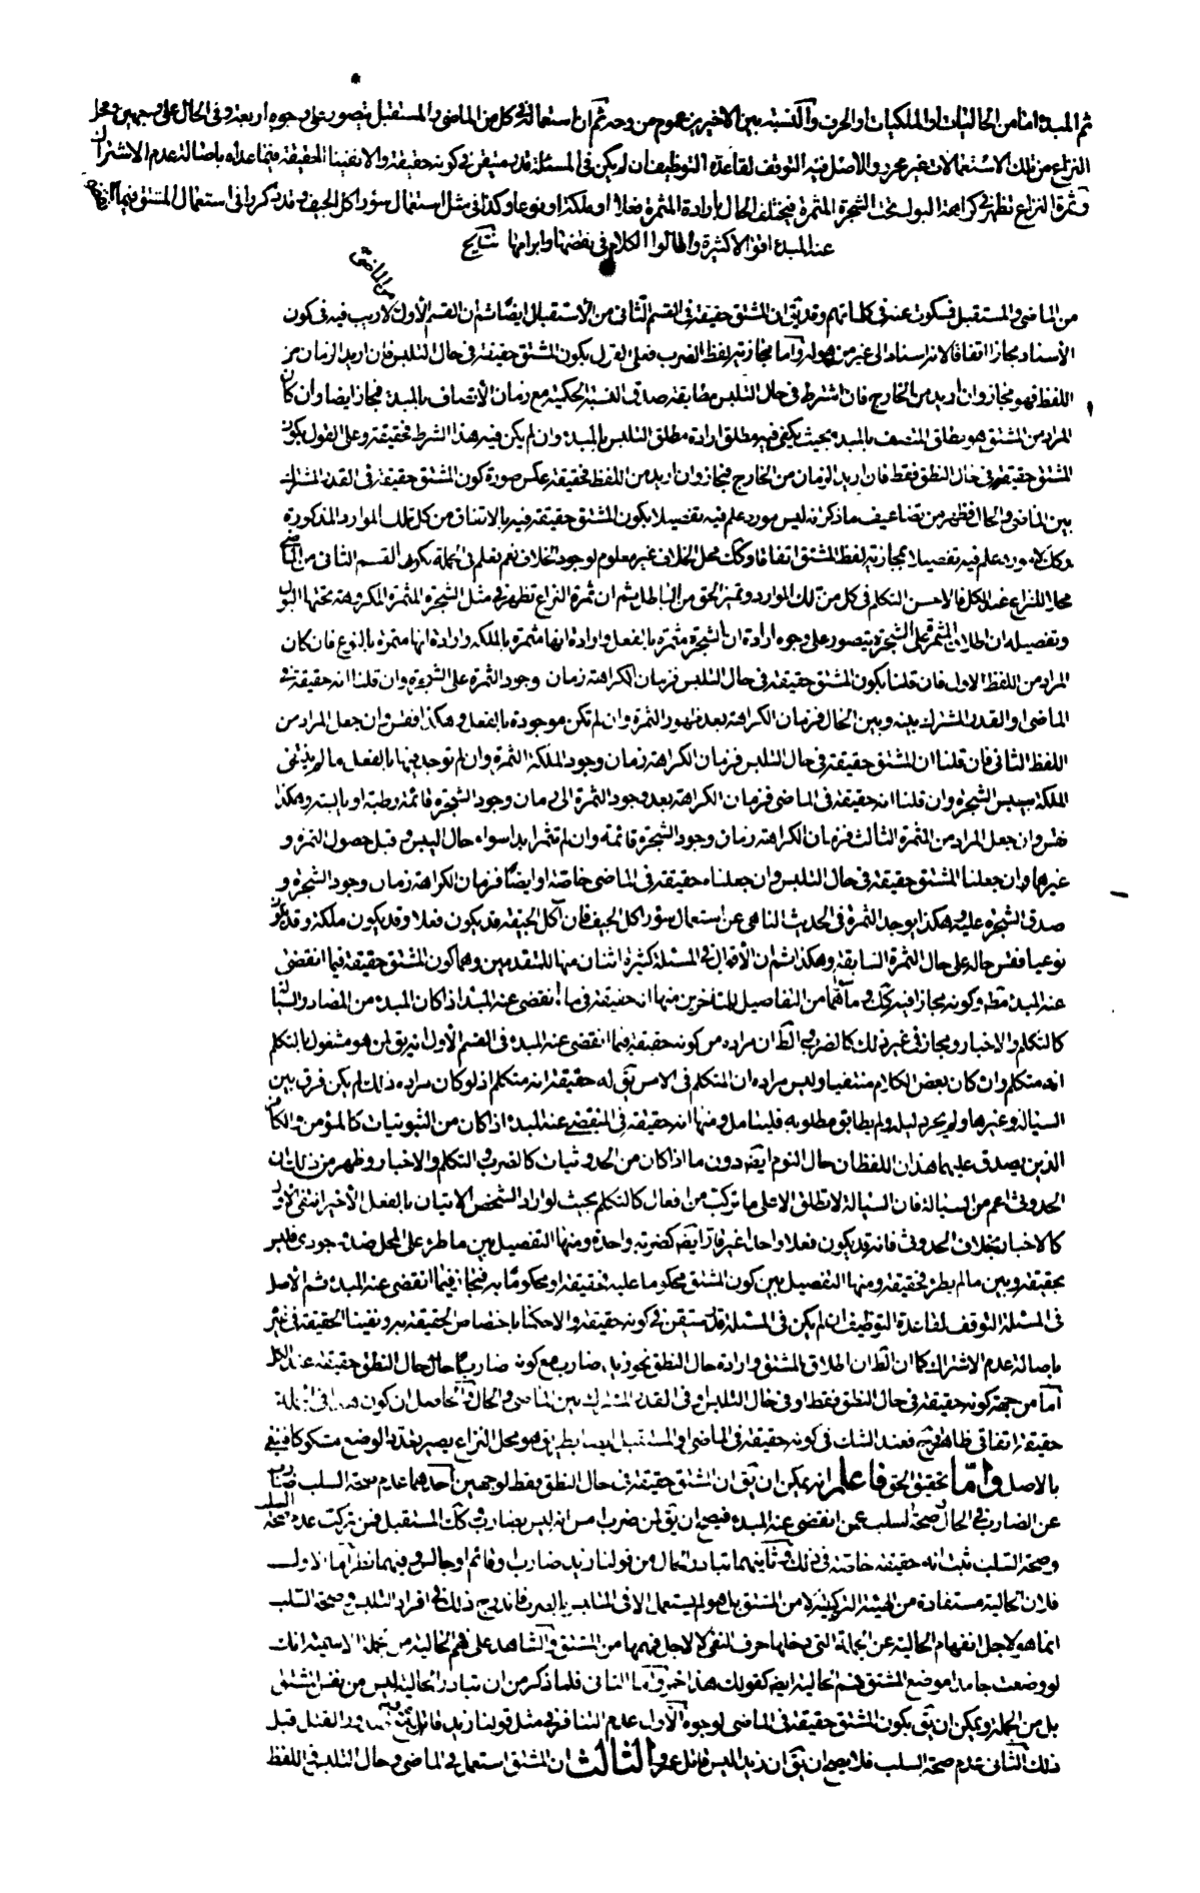 ثم المبدء اما من الحاليات او الملكيات او الحرف والنسبة بين الاخيرين عموم من وجه ثم ان استعماله في كل من الماضي والمستقبل يتصور على وجوه اربعة وفي الحال على وجهين ومحل
النزاع من تلك الاستعمالات غير محرر والاصل فيه التوقف لقاعدة التوظيف ان لم يكن في المسئلة قدر متيقن في كونه حقيقة والا نفينا الحقيقة فيما عداه باصالة عدم الاشتراك
وثمرة النزاع تظهر في كراهة البول تحت الشجرة المثمرة فيختلف الحال بارادة المثمرة فعلا او ملكة او نوعا وكذا في مثل استعمال سؤر اكل الجيف وقد ذكروا في استعمال المشتق فيما انقضى
عنه المبدء اقوالا كثيرة واطالوا الكلام في نقضها وابرامها نتايج
من الماضي
من الماضي والمستقبل فسكوت عنه في كلماتهم وقد يق ان المشتق حقيقة في القسم الثاني من الاستقبال ايضا ثم ان القسم الاول لا ريب فيه في كون
الاسناد مجازا اتفاقا لانه اسناد الى غير من هو له واما مجازية لفظ الضرب فعلى القول بكون المشتق حقيقة في حال التلبس فان اريد الزمان من
اللفظ فهو مجاز وان اريد من الخارج فان اشترط في حال التلبس مطابقة صدق النسبة الحكمية مع زمان الاتصاف بالمبدء فمجاز ايضا وان كان
المراد من المشتق هو مطلق المتصف بالمبدء بحيث يكفي فيه مطلق ارادة مطلق التلبس بالمبدء وان لم يكن فيه هذا الشرط فحقيقة وعلى القول بكون
المشتق حقيقة في حال النطق فقط فان اريد الزمان من الخارج فمجاز وان اريد من اللفظ فحقيقة عكس صورة كون المشتق حقيقة في القدر المشترك
بين الماضي والحال فظهر من تضاعيف ما ذكرنا انه ليس مورد علم فيه تفصيلا بكون المشتق حقيقة فيه بالاتفاق من كل تلك الموارد المذكورة
وكذا لا مورد علم فيه تفصيلا بمجازية لفظ المشتق اتفاقا وكك محل الخلاف غير معلوم لوجود الخلاف نعم نعلم في الجملة بكون القسم الثاني من الماضي
محلا للنزاع عند الكل فالاحسن التكلم في كل من تلك الموارد وتميز الحق من الباطل ثم ان ثمرة النزاع تظهر في مثل الشجرة المثمرة المكروهة تحتها البول
وتفصيله ان اطلاق المثمرة على الشجرة يتصور على وجوه ارادة ان الشجرة مثمرة بالفعل وارادة انها مثمرة بالملكة وارادة انها مثمرة بالنوع فان كان
المراد من اللفظ الاول فان قلنا بكون المشتق حقيقة في حال التلبس فزمان الكراهة زمان وجود الثمرة على الشجرة وان قلنا انه حقيقة في
الماضي او القدر المشترك بينه وبين الحال فزمان الكراهة بعد ظهور الثمرة وان لم تكن موجودة بالفعل وهكذا فقس وان جعل المراد من
اللفظ الثاني فان قلنا ان المشتق حقيقة في حال التلبس فزمان الكراهة زمان وجود الملكة الثمرة وان لم توجد فيها بالفعل ما لم ينتفي
الملكة بيبس الشجرة وان قلنا انه حقيقة في الماضي فزمان الكراهة بعد وجود الثمرة الى زمان وجود الشجرة قائمة رطبة او يابسة وهكذا
فقس وان جعل المراد من الثمرة الثالث فزمان الكراهة زمان وجود الشجرة قائمة وان لم تثمر ابدا سواء حال اليبس و قبل حصول الثمرة و
غيرها وان جعلنا المشتق حقيقة في حال التلبس وان جعلناه حقيقة في الماضي خاصة او ايضا فزمان الكراهة زمان وجود الشجرة و
صدق الشجرة عليه وهكذا يوجد الثمرة في الحديث الناهي عن استعمال سؤر اكل الجيف فان آكل الجيفة قد يكون فعلا وقد يكون ملكة وقد يكون
نوعيا فقس حاله على حال الثمرة السابقة وهكذا ثم ان الاقوال في المسئلة كثيرة اثنان منها للمتقدمين وهما كون المشتق حقيقة فيما انقضى
عنه المبدء مطلقا وكونه مجازا فيه كك وما من التفاصيل للمتأخرين منها انه حقيقة فيما انقضى عنه المبدء اذا كان المبدء من المصادر السيالة
كالتكلم والاخبار ومجاز في غير ذلك كالضرب والظ ان مراده من كونه حقيقة فيما انقضى عنه المبدء في القسم الاول انه يق لمن هو مشغول بالتكلم
انه متكلم وان كان بعض الكلام منتفيا وليس مراده ان المتكلم في الامس يق له حقيقة انه متكلم اذ لو كان مراده ذلك لم يكن فرق بين
السيالة وغيرها ولم يجر دليله ولم يطابق مطلوبه فليتامل ومنها انه حقيقة في المنقضي عنه المبدء اذا كان من الثبوتيات كالمؤمن والكافر
الذين يصدق عليهما هذان اللفظان حال النوم ايضا دون ما اذا كان من الحدوثيات كالضرب والتكلم والاخبار وظهر من ذلك ان
الحدوثي اعم من السيالة فان السيالة لا تطلق الا على ما تركب من افعال كالتكلم بحيث لو اراد الشخص الاتيان بالفعل الاخير انتفى الاول
كالاخبار بخلاف الحدوثي فانه قد يكون فعلا واحدا غير قار ايضا كضربة واحدة ومنها التفصيل بين ما طرء على المحل ضد وجودي فليس
بحقيقة وبين ما لم يطرء فحقيقة ومنها التفصيل بين كون المشتق محكوما عليه فحقيقة او محكوما به فمجاز فيما انقضى عنه المبدء ثم الاصل
في المسئلة التوقف لقاعدة التوظيف ان لم يكن في المسئلة قدر متيقن في كونه حقيقة والا حكمنا باختصاص الحقيقة به ونفينا الحقيقة في غيره
باصالة عدم الاشتراك كما ان الظ ان اطلاق المشتق وارادة حال النطق نحو زيد ضارب مع كونه ضاربا حال النطق حقيقة عند الكل
اما من جهة كونه حقيقة في حال النطق فقط او في حال التلبس او في القدر المشترك بين الماضي والحال والحاصل ان كون هذا في الجملة
حقيقة اتفاقي ظاهرا فعند الشك في كونه حقيقة في الماضي او المستقبل ايضا بطريق هو محل النزاع يصير تعدد الوضع مشكوكا فينفى
بالاصل واما تحقيق الحق فاعلم انه يمكن ان يق ان المشتق حقيقة في حال النطق فقط لوجهين احدهما عدم صحة السلب ضارب
عن الضارب في الحال وصحة السلب عمن انقضى عنه المبدء فيصح ان يق لمن ضرب امس انه ليس بضارب وكك المستقبل فمن تركب عدم صحة السلب
وصحة السلب ثبت انه حقيقة خاصة في ذلك وثانيهما تبادر الحال من قولنا زيد ضارب او قائم او جالس وفيهما نظر اما الاول
فلان الحالية مستفادة من الهيئة التركيبية لا من المشتق بل هو لم يستعمل الا في المتلبس بالضرب فاندرج ذلك في افراد التلبس وصحة السلب
انما هو لاجل انفهام الحالية عن الجملة التي دخلها حرف النفي لا لاجل فهمها من المشتق والشاهد على فهم الحالية من الجملة الاسمية انك
لو وضعت جامدا موضع المشتق فهم الحالية ايضا كقولك هذا حجر واما الثاني فلما ذكر من ان تبادر الحالية ليس من نفس المشتق
بل من الجملة ويمكن ان يق بكون المشتق حقيقة في الماضي لوجوه الاول عدم التنافر في مثل قولنا زيد قاتل عمرو القتل قبل
ذلك الثاني عدم صحة السلب فلا يصح ان يق ان زيد ليس قاتل عمرو الثالث ان المشتق استعمل في الماضي وحال التلبس في اللفظ